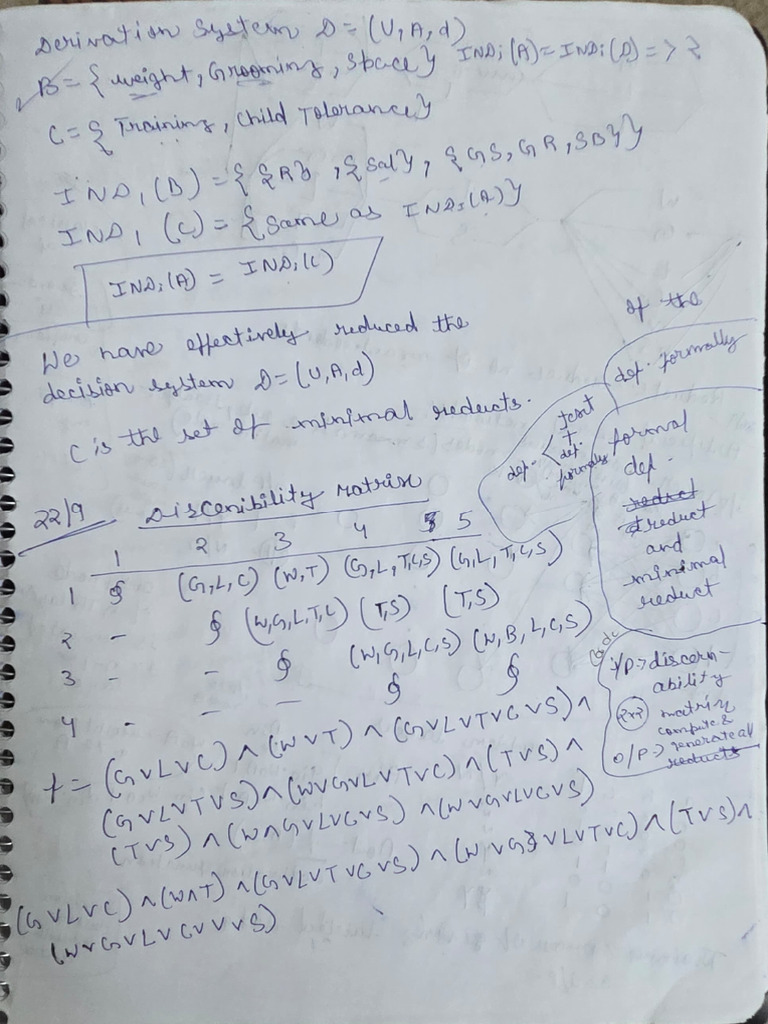 Derivation System D = (U, A, d)
B = { weight, Grooming, Space} INDi(A) = INDi(D) = > {
C = { Training, Child Tolerance}
IND1 (B) = { {R}, {Sal}, {GS, GR, SB}}
IND1 (C) = { same as INDi(A)}
INDi(A) = INDi(C)
We have effectively reduced the
decision system D = (U, A, d)
C is the set of minimal reducts.
of the
def. formally
def. < text
+
def.
formally
formal
def.
reduct
and
minimal
reduct
22/9 Discenibility Matrix
1 2 3 4 5
1 ∮ (G,L,C) (W,T) (G,L,T,C,S) (G,L,T,C,S)
2 - ∮ (W,G,L,T,C) (T,S) (T,S)
3 - - ∮ (W,G,L,C,S) (W,B,L,C,S)
4 - - - ∮ ∮
i/p -> discern-
ability
matrix
compute &
O/P -> generate all
reducts
f = (G∨L∨C) ∧ (W∨T) ∧ (G∨L∨T∨C∨S) ∧
(G∨L∨T∨S) ∧ (W∨G∨L∨T∨C) ∧ (T∨S) ∧
(T∨S) ∧ (W∧G∨L∨C∨S) ∧ (W∨G∨L∨C∨S)
(G∨L∨C) ∧ (W∧T) ∧ (G∨L∨T∨C∨S) ∧ (W∨G∨L∨T∨C) ∧ (T∨S) ∧
(W∨G∨L∨C∨∨∨S)